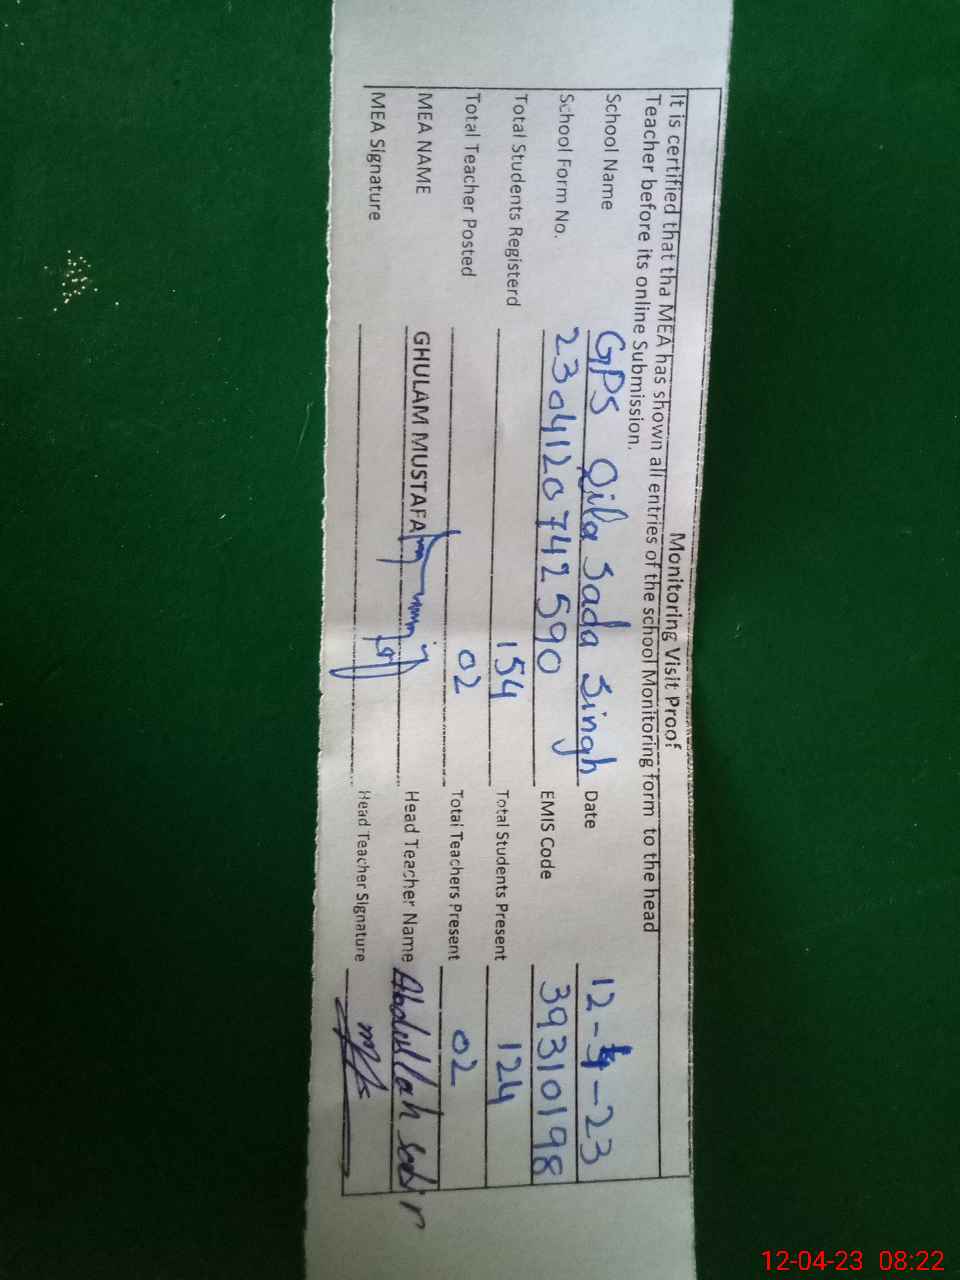 Monitoring Visit Proof
It is certified that tha MEA has shown all entries of the school Monitoring form to the head
Teacher before its online Submission.
School Name GPS Qila Sada Singh Date 12-4-23
School Form No. 2304120742590 EMIS Code 39310198
Total Students Registerd 154 Total Students Present 124
Total Teacher Posted 02 Total Teachers Present 02
MEA NAME GHULAM MUSTAFA Head Teacher Name Abdullah sabir
MEA Signature Head Teacher Signature
12-04-23 08:22